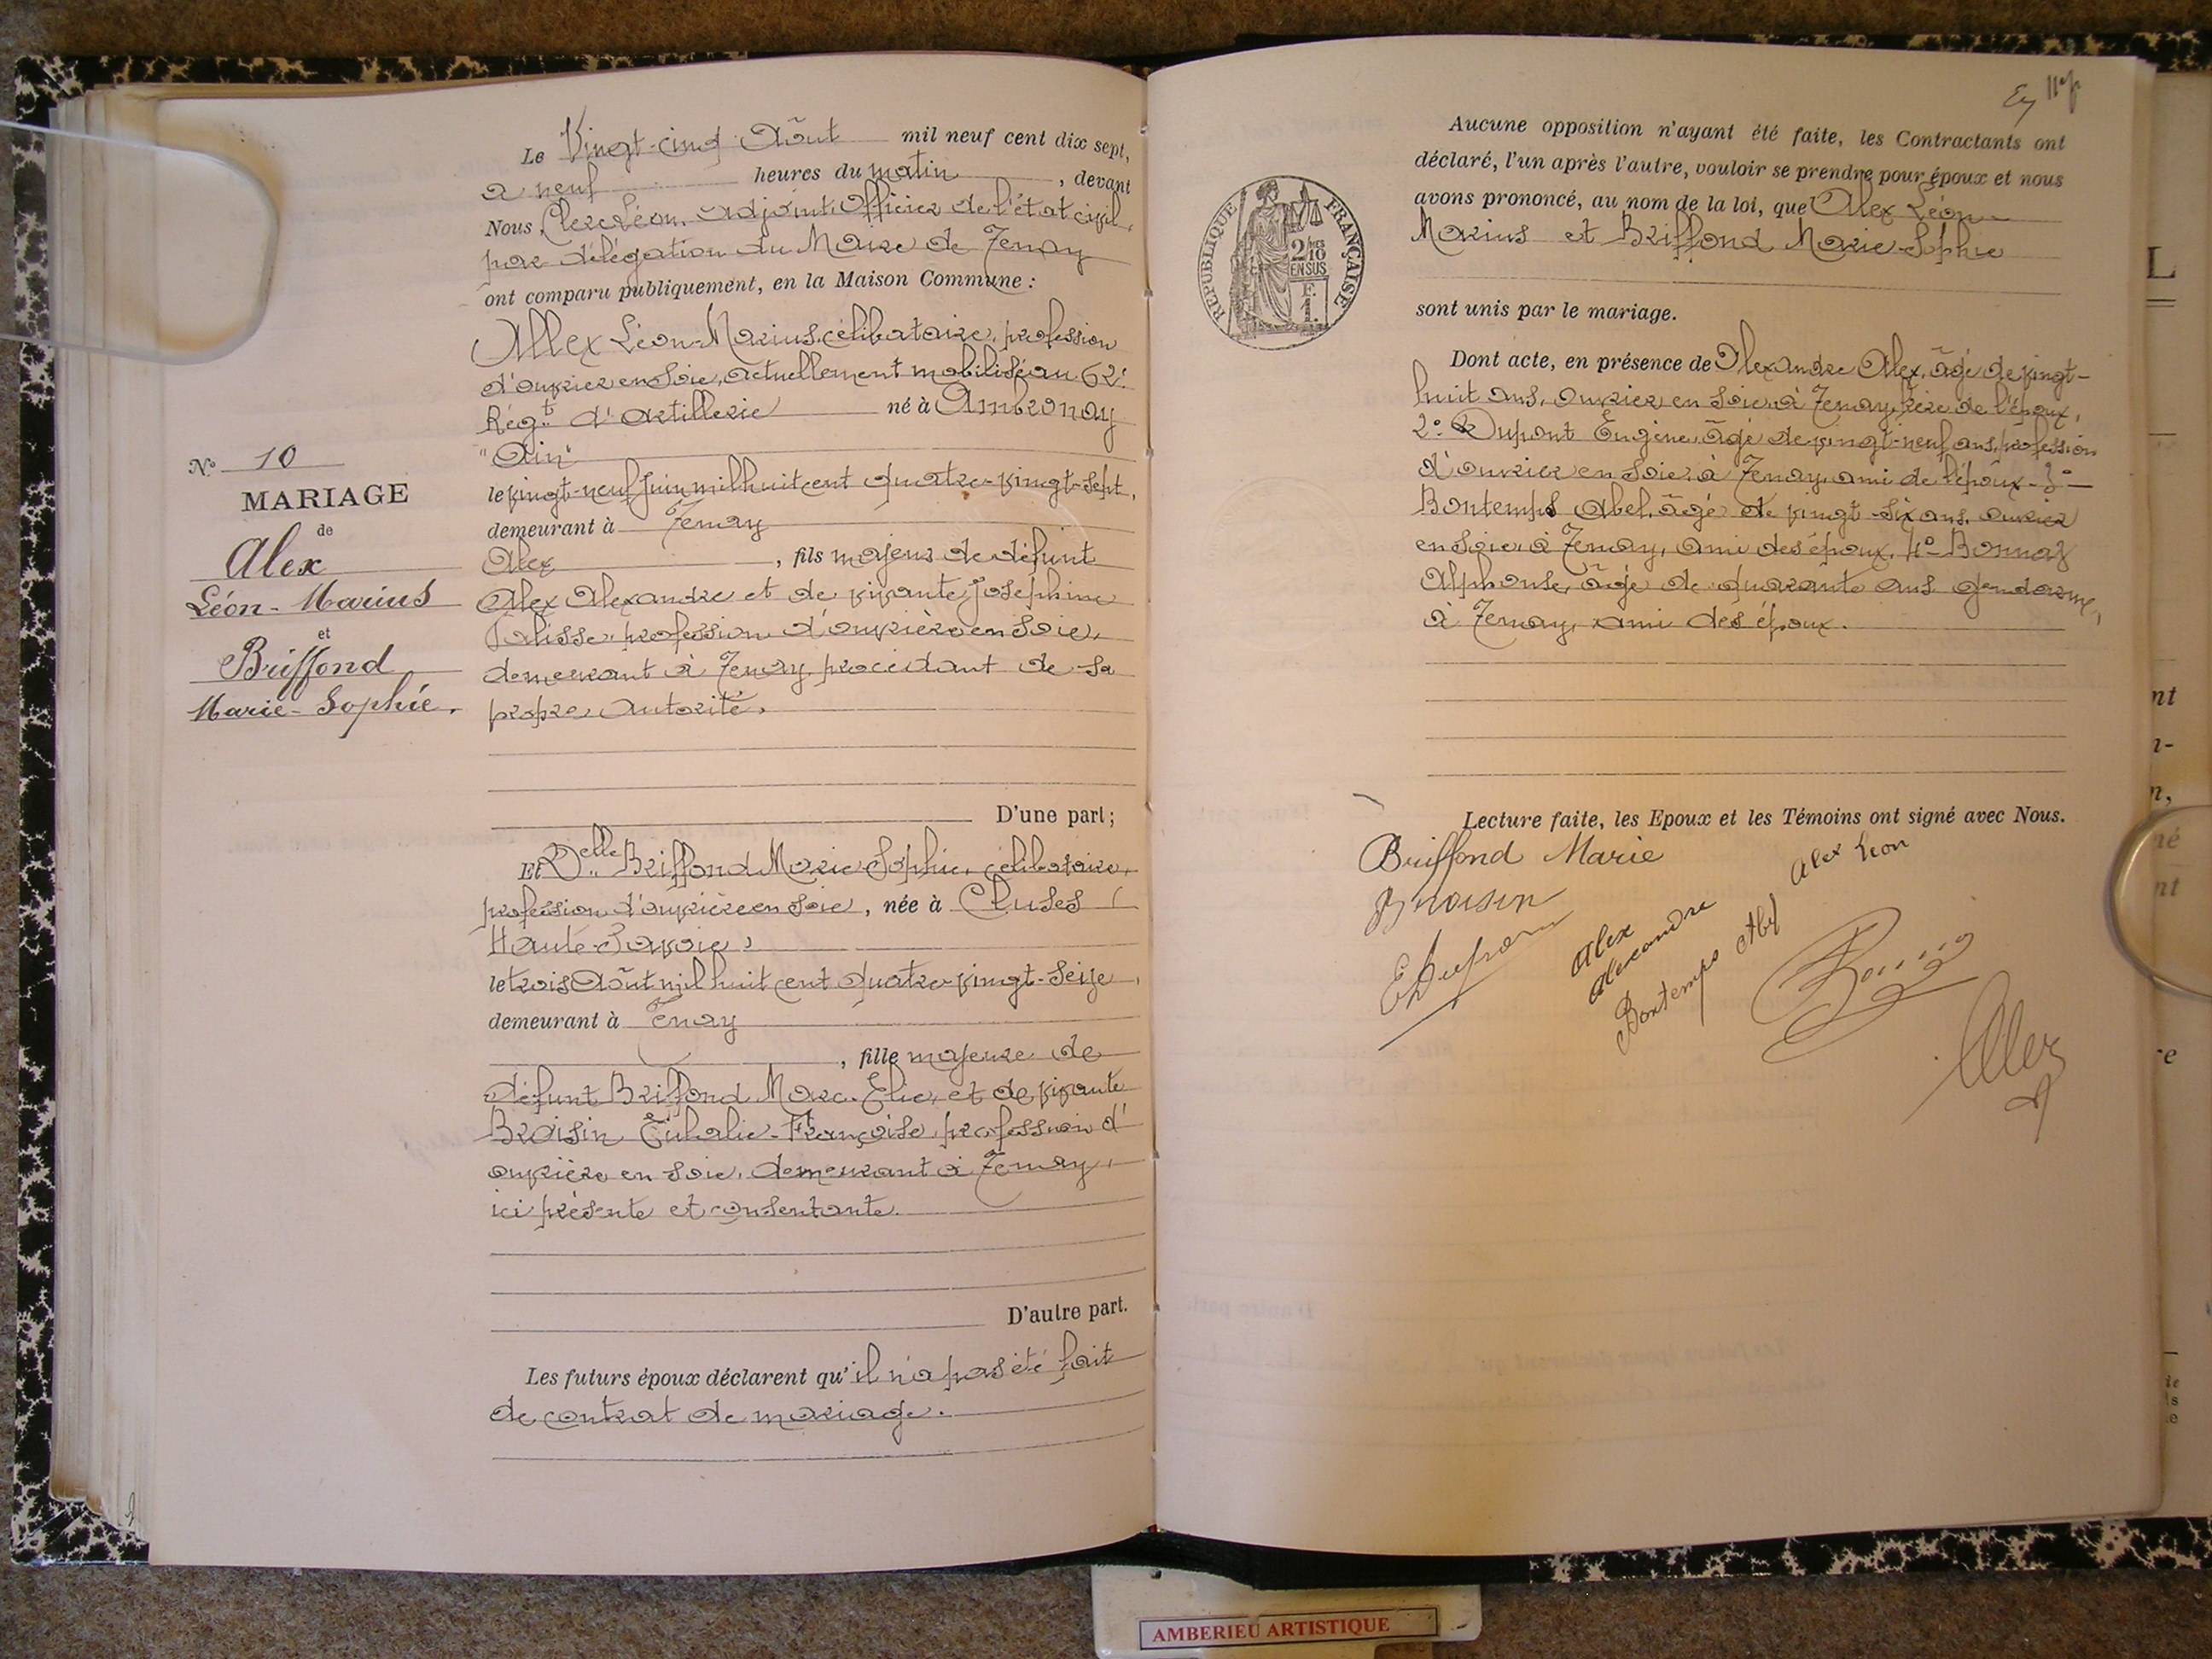 Le Vingt-cinq Août mil neuf cent dix sept,
a neuf heures du matin, devant
Nous, Clerc Léon, adjoint, Officier de l'état civil,
par délégation du Maire de Tenay
ont comparu publiquement, en la Maison Commune :
Allex Léon-Marius, célibataire, profession
d'ouvrier en soie, actuellement mobilisé au 62e
Régt d'artillerie né à Ambronay
"Ain"
le vingt-neuf juin mil huit cent quatre-vingt-sept,
demeurant à Tenay
Alex, fils majeur de défunt
Alex Alexandre et de vivante Joséphine
profession d'ouvrière en soie,
demeurant à Tenay, procédant de sa
propre autorité.
D'une part ;
Et Delle Briffond Marie-Sophie, célibataire,
profession d'ouvrière en soie, née à Cluses (
Haute-Savoie)
le trois Août mil huit cent quatre-vingt-seize,
demeurant à Tenay
, fille majeure de
défunt Briffond Marc-Elie, et de vivante
Broisin Eulalie-Françoise, profession d'
ouvrière en soie, demeurant à Tenay,
ici présente et consentante.
D'autre part.
Les futurs époux déclarent qu'il n'a pas été fait
de contrat de mariage.
No 10
MARIAGE
de
Alex
Léon-Marius
et
Briffond
Marie-Sophie.
Aucune opposition n'ayant été faite, les Contractants ont
déclaré, l'un après l'autre, vouloir se prendre pour époux et nous
avons prononcé, au nom de la loi, que Alex Léon
Marius et Briffond Marie-Sophie
sont unis par le mariage.
Dont acte, en présence de Alexandre Alex, âgé de vingt-
huit ans, ouvrier en soie, à Tenay, frère de l'époux,
2° Dupont Eugène, âgé de vingt-neuf ans, profession
d'ouvrier en soie, à Tenay, ami de l'époux - 3°
Bontemps Abel, âgé de vingt-six ans, ouvrier
en soie, à Tenay, ami des époux, 4° Bonnaz
Alphonse, âgé de quarante ans gendarme,
à Tenay, ami des époux.
REPUBLIQUE FRANÇAISE
2/10 EN SUS
F. 1.
Lecture faite, les Epoux et les Témoins ont signé avec Nous.
Briffond Marie
Alex Léon
Broisin
E Dupont
Alex
Alexandre
Bontemps Abel
AMBERIEU ARTISTIQUE